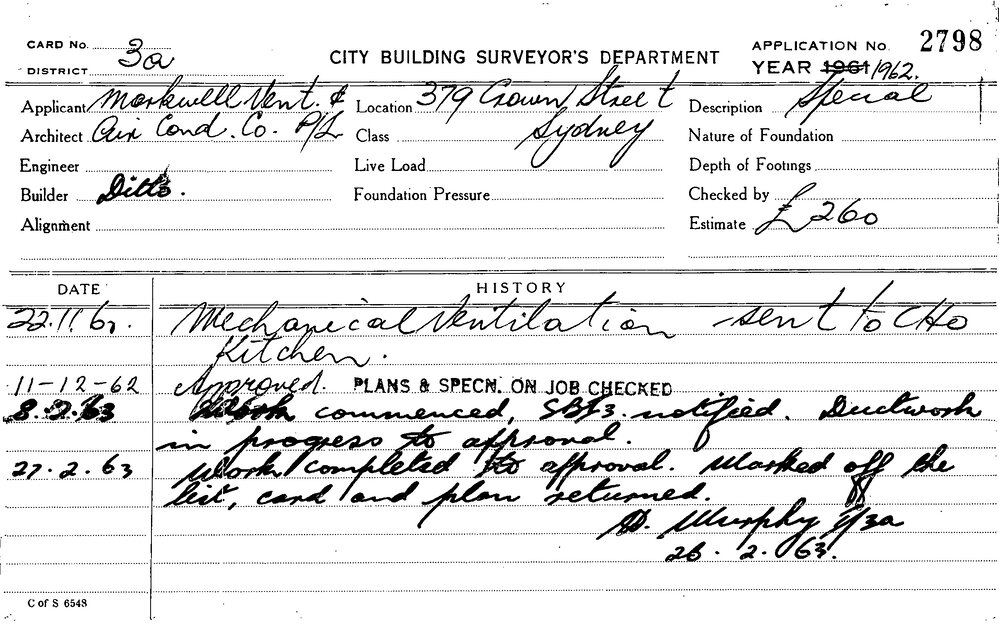 CARD No. 3a
DISTRICT
CITY BUILDING SURVEYOR'S DEPARTMENT
APPLICATION No. 2798
YEAR 1961/1962.
Applicant Markwell Vent. & Location 379 Crown Street Description Special
Architect Air Cond. Co. P/L Class Sydney Nature of Foundation
Engineer Live Load Depth of Footings
Builder Ditto. Foundation Pressure Checked by
Alignment Estimate £260
DATE HISTORY
22.11.62. Mechanical Ventilation - sent to CHO
Kitchen.
11-12-62 Approved. PLANS & SPECN. ON JOB CHECKED
8.2.63 Work commenced, notified. Ductwork
in progress to approval.
27.2.63 Work completed to approval. Marked off the
list, card and plan returned.
Murphy
26.2.63.
C of S 6548